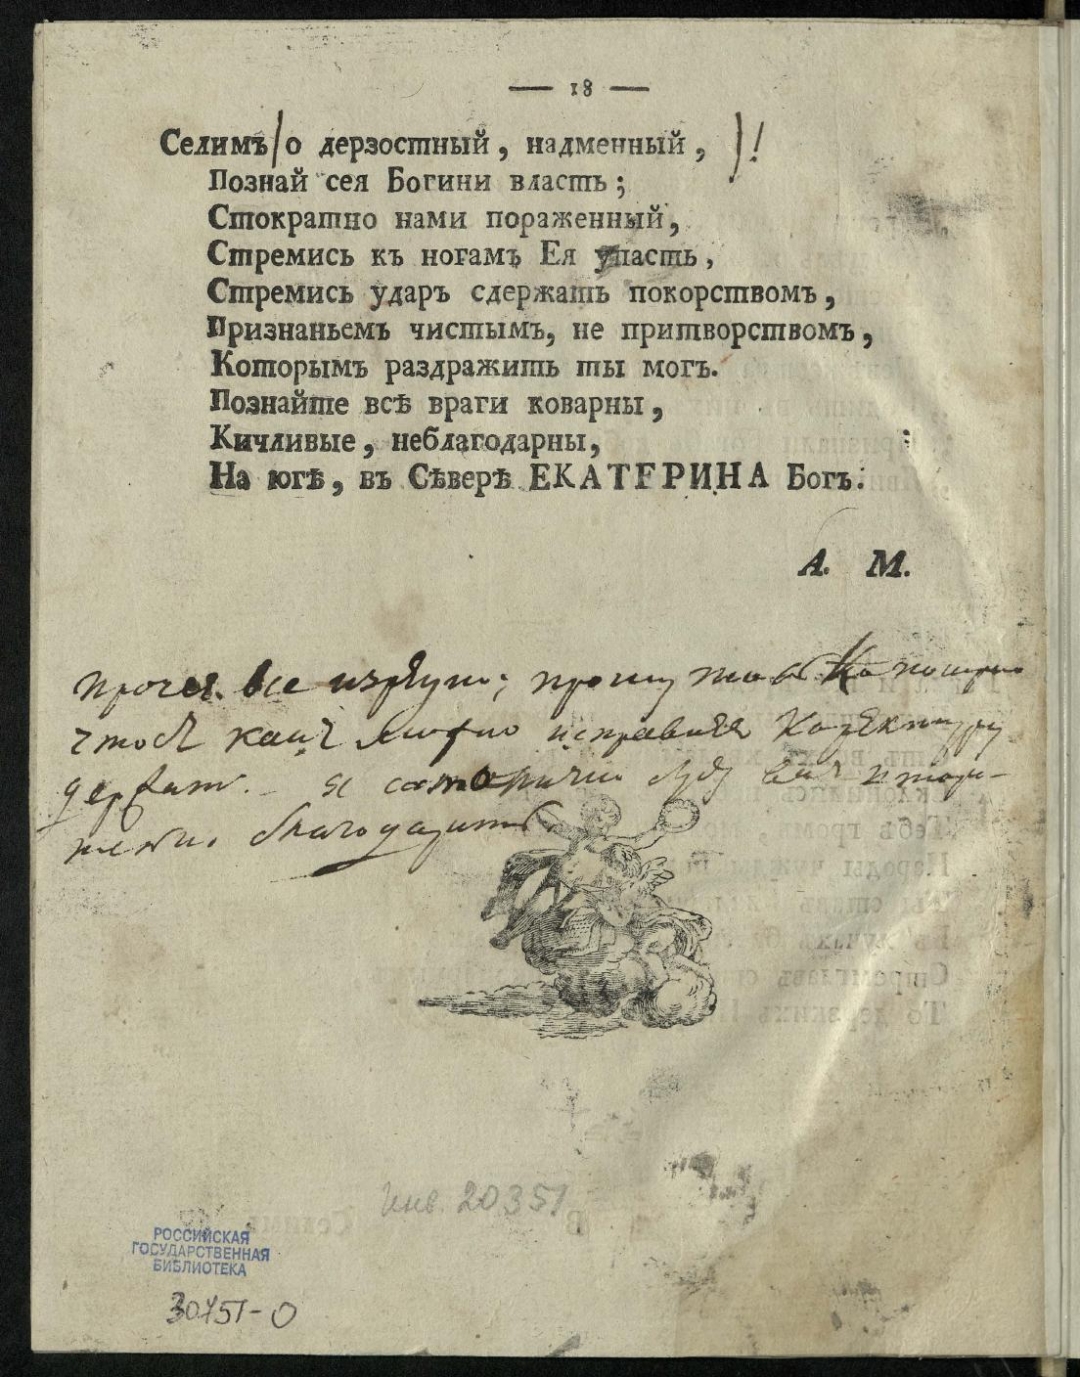 — 18 —
Селимъ о дерзостный, надменный, )!
Познай сея Богини власть;
Стократно нами пораженный,
Стремись къ ногамъ Ея упасть,
Стремись ударъ сдержать покорствомъ,
Признаньемъ чистымъ, не притворствомъ,
Которымъ раздражить ты могъ.
Познайте всѣ враги коварны,
Кичливые, неблагодарны,
На югѣ, въ Сѣверѣ ЕКАТЕРИНА Богъ.
А. М.
все прошу
чтобъ какъ можно
я буду вамъ
благодарить
Инв. 20351
РОССИЙСКАЯ
ГОСУДАРСТВЕННАЯ
БИБЛИОТЕКА
30751-0